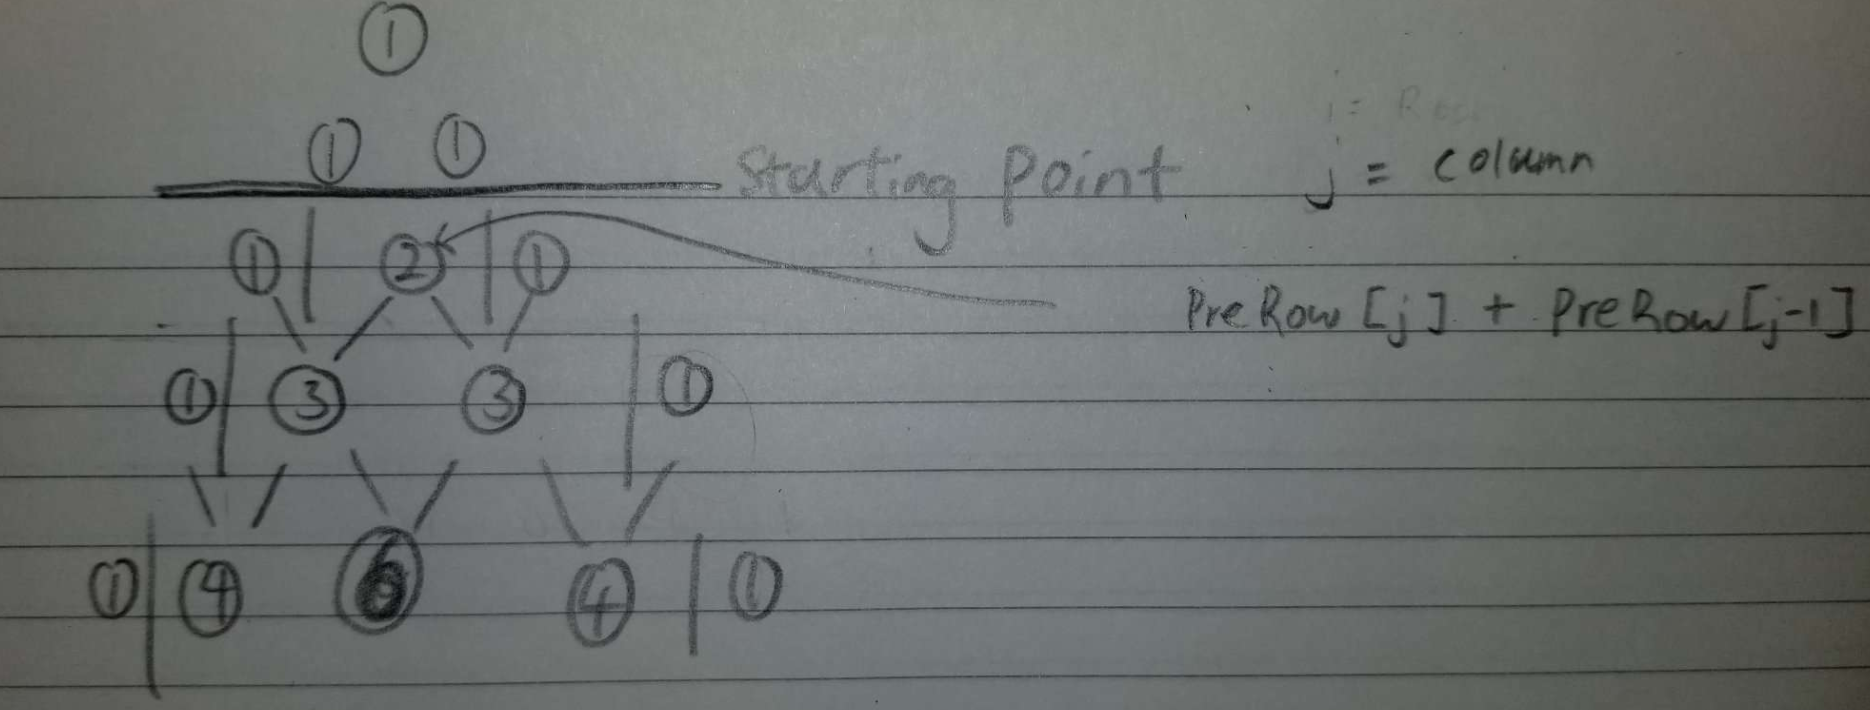 1
1 1
Starting Point
j = column
1 2 1
PreRow [j] + PreRow [j-1]
1 3 3 1
1 4 6 4 1